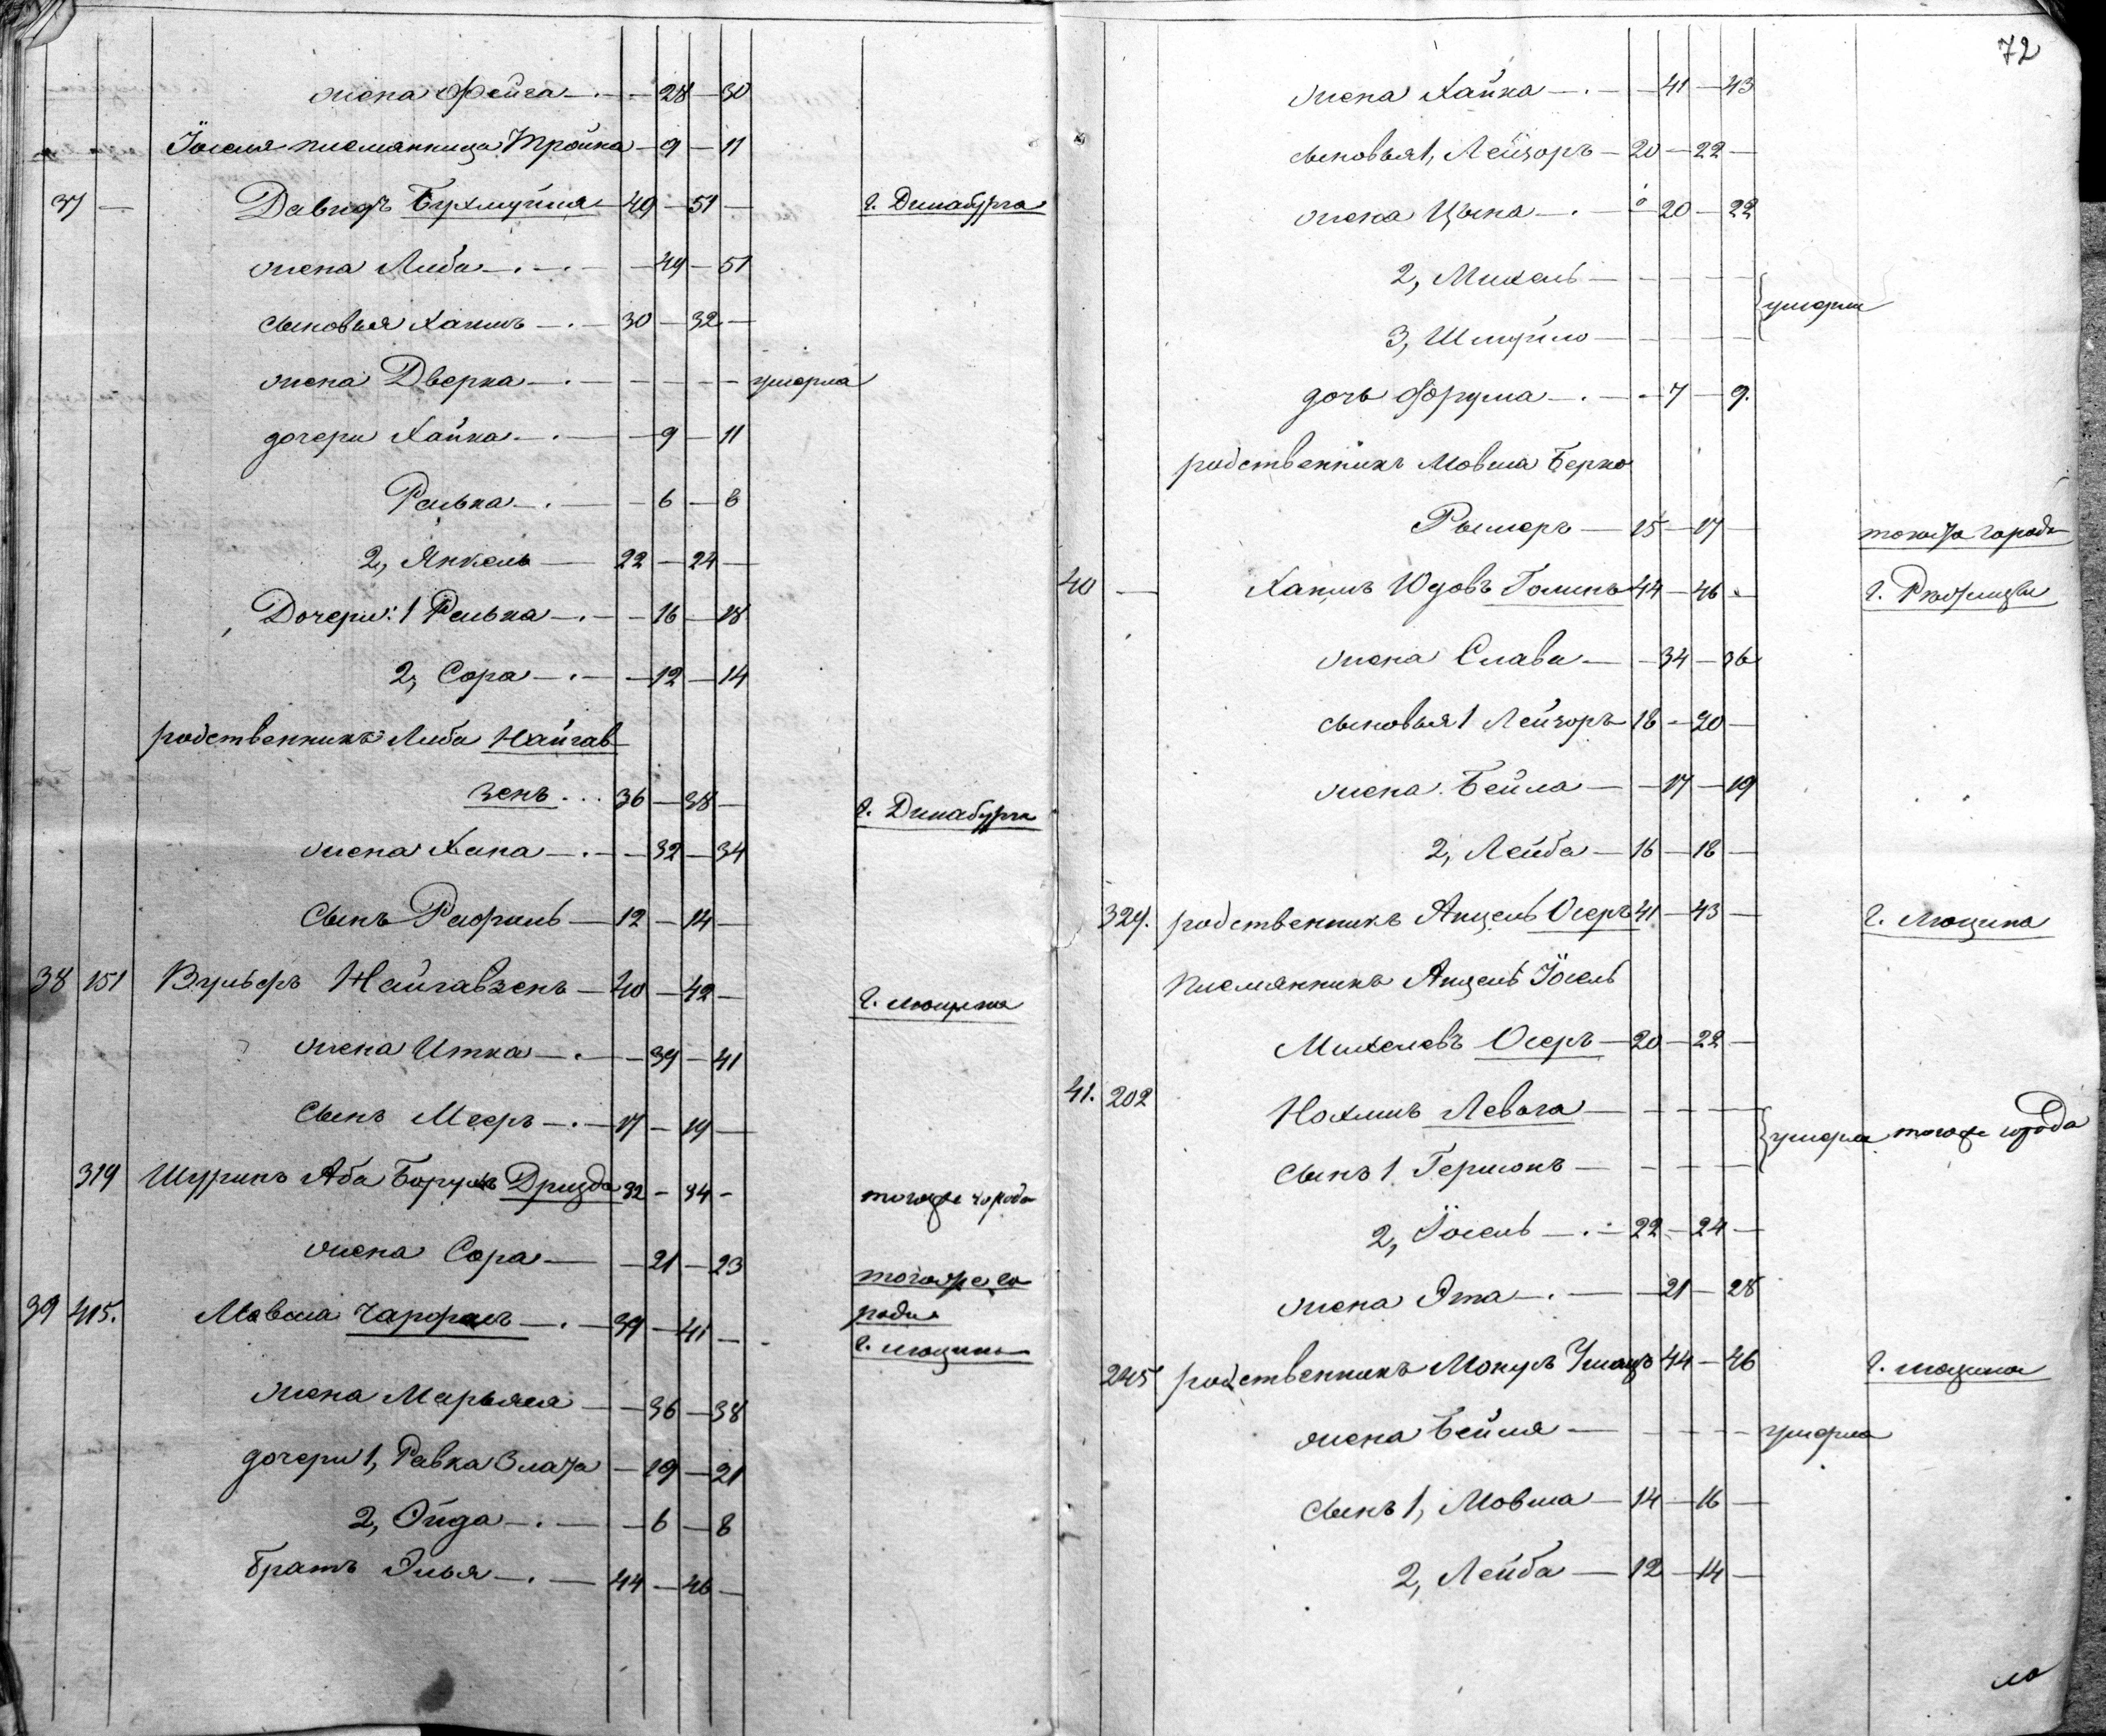 жена Фейга — 28 — 30
Іоселя племянница Тройна — 9 — 11
37 — Давидъ Бухмуйля — 49 — 51 — г. Динабурга
жена Либа — 49 — 51
сыновья Хаимъ — 30 — 32 —
жена Дверка — умерла
дочери Хайка — 9 — 11
Рывка — 6 — 8
2, Янкель — 22 — 24 —
Дочери: 1 Рывка — 16 — 18
2, Сора — 12 — 14
родственникъ Либа Найгав
зенъ... 36 — 38 — г. Динабурга
жена Хана — 32 — 34
сынъ Рафиль — 12 — 14 —
38 151 Вульфъ Найгавзенъ — 40 — 42 — г. Люцина
жена Итка — 39 — 41
сынъ Мееръ — 17 — 19 —
319 Шуринъ Аба Борухъ Дризда 32 — 34 — тогоже города
жена Сора — 21 — 23
тогоже го
39 415. Мовша Чарфасъ — 39 — 41 — рода
г. Люцина
жена Марьяся — 36 — 38
дочери 1, Равка Злата — 19 — 21
2, Эйда — 6 — 8
братъ Элья — 44 — 46 —
72
жена Хайка — 41 — 43
сыновья 1, Лейзоръ — 20 — 22 —
жена Цына — 20 — 22
2, Михель —
умерли
3, Шмуйло —
дочь Фрума — 7 — 9.
родственникъ Мовша Берко
Рымеръ — 15 — 17 — тогожъ города
40 — Хаимъ Юдовъ Голинъ 44 — 46 — г. Рѣжицы
жена Слава — 34 — 36
сыновья 1 Лейзоръ 18 — 20 —
жена Бейла — 17 — 19
2, Лейба — 16 — 18 —
329. родственникъ Анцель Осеръ 41 — 43 — г. Люцина
племянникъ Анцель Іосель
Михелевъ Осеръ — 20 — 22 —
41. 202 Нохимъ Левага —
умерли тогоже города
сынъ 1 Гершонъ —
2, Іосель — 22 — 24 —
жена Эта — 21 — 23
245 родственникъ Монусъ 44 — 46 г. Люцина
жена Бейля — умерла
сынъ 1, Мовша — 14 — 16 —
2, Лейба — 12 — 14 —